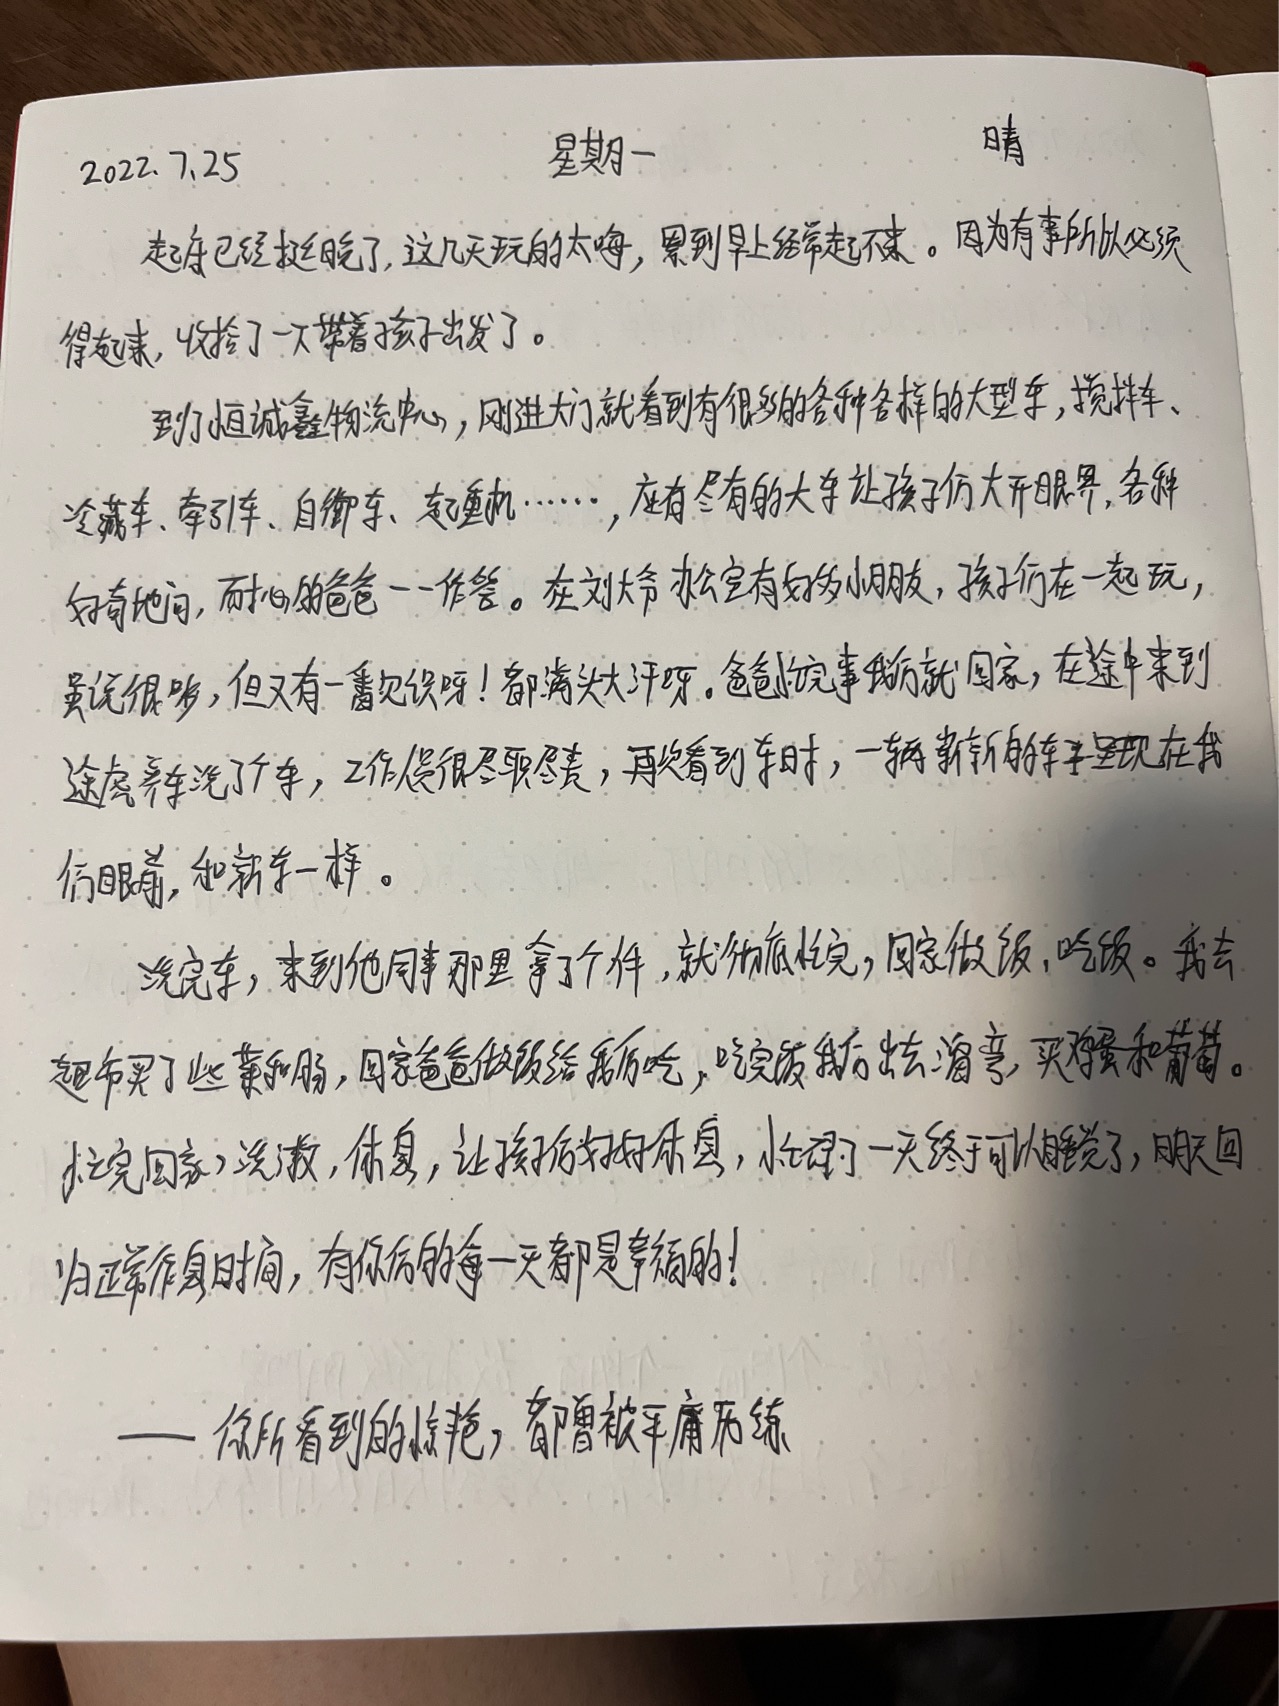 2022.7.25 星期一 晴
起床已经挺晚了,这几天玩的太嗨,累到早上经常起不来。因为有事所以必须
得起来,收拾了一下带着孩子出发了。
到了恒诚鑫物流中心,刚进大门就看到有很多的各种各样的大型车,搅拌车、
冷藏车、牵引车、自御车、起重机……,应有尽有的大车让孩子们大开眼界,各种
好奇地问,耐心的爸爸一一作答。在刘大爷办公室有好多小朋友,孩子们在一起玩,
虽说很吵,但又有一番欢误呀!都满头大汗呀。爸爸忙完事我们就回家,在途中来到
途虎养车洗了个车,工作人员很尽职尽责,再次看到车时,一辆崭新的车呈现在我
们眼前,和新车一样。
洗完车,来到他同事那里拿了个件,就彻底忙完,回家做饭、吃饭。我去
超市买了些菜和肠,回家爸爸做饭给我们吃,吃完饭我们出去溜弯,买鸡蛋和葡萄。
忙完回家,洗漱,休息,让孩子们好好休息,忙碌了一天终于可以睡觉了,明天回
归正常作息时间,有你们的每一天都是幸福的!
—— 你所看到的惊艳,都曾被平庸历练